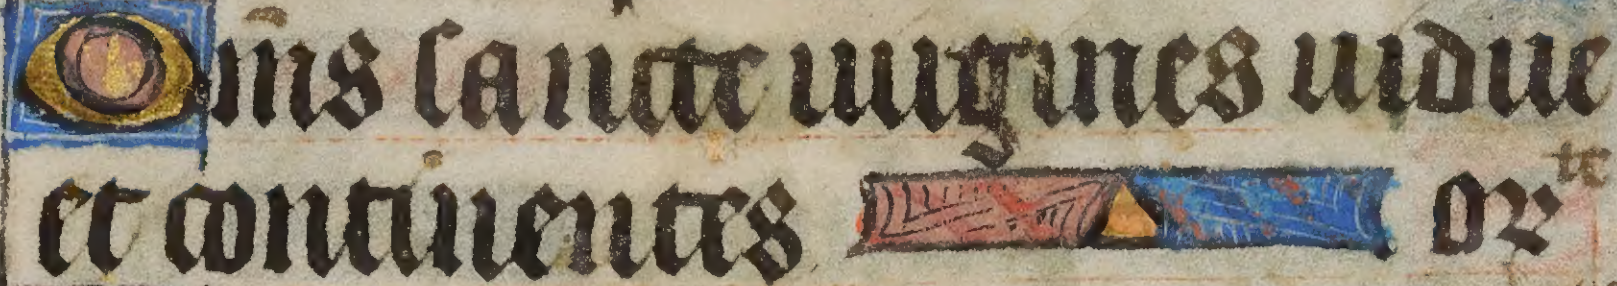 Om̅s sancte uirgines uidue
et continentes orᵗᵉ